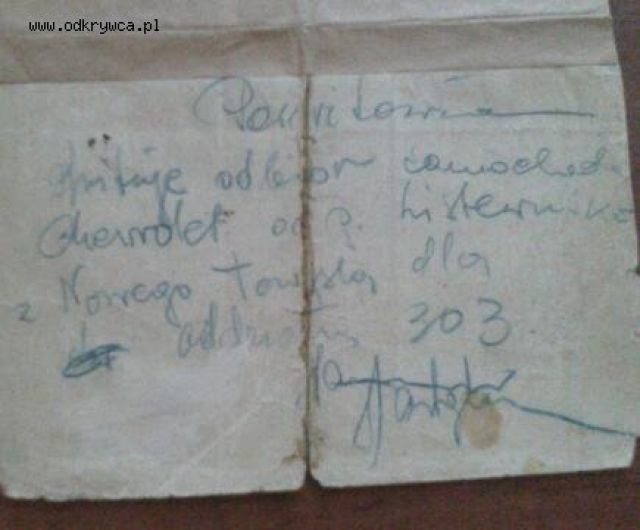 www.odkrywca.pl
Pokwitowanie
odbiór samochodu
Chevrolet od p.
z Nowego Targu dla
oddziału 303.